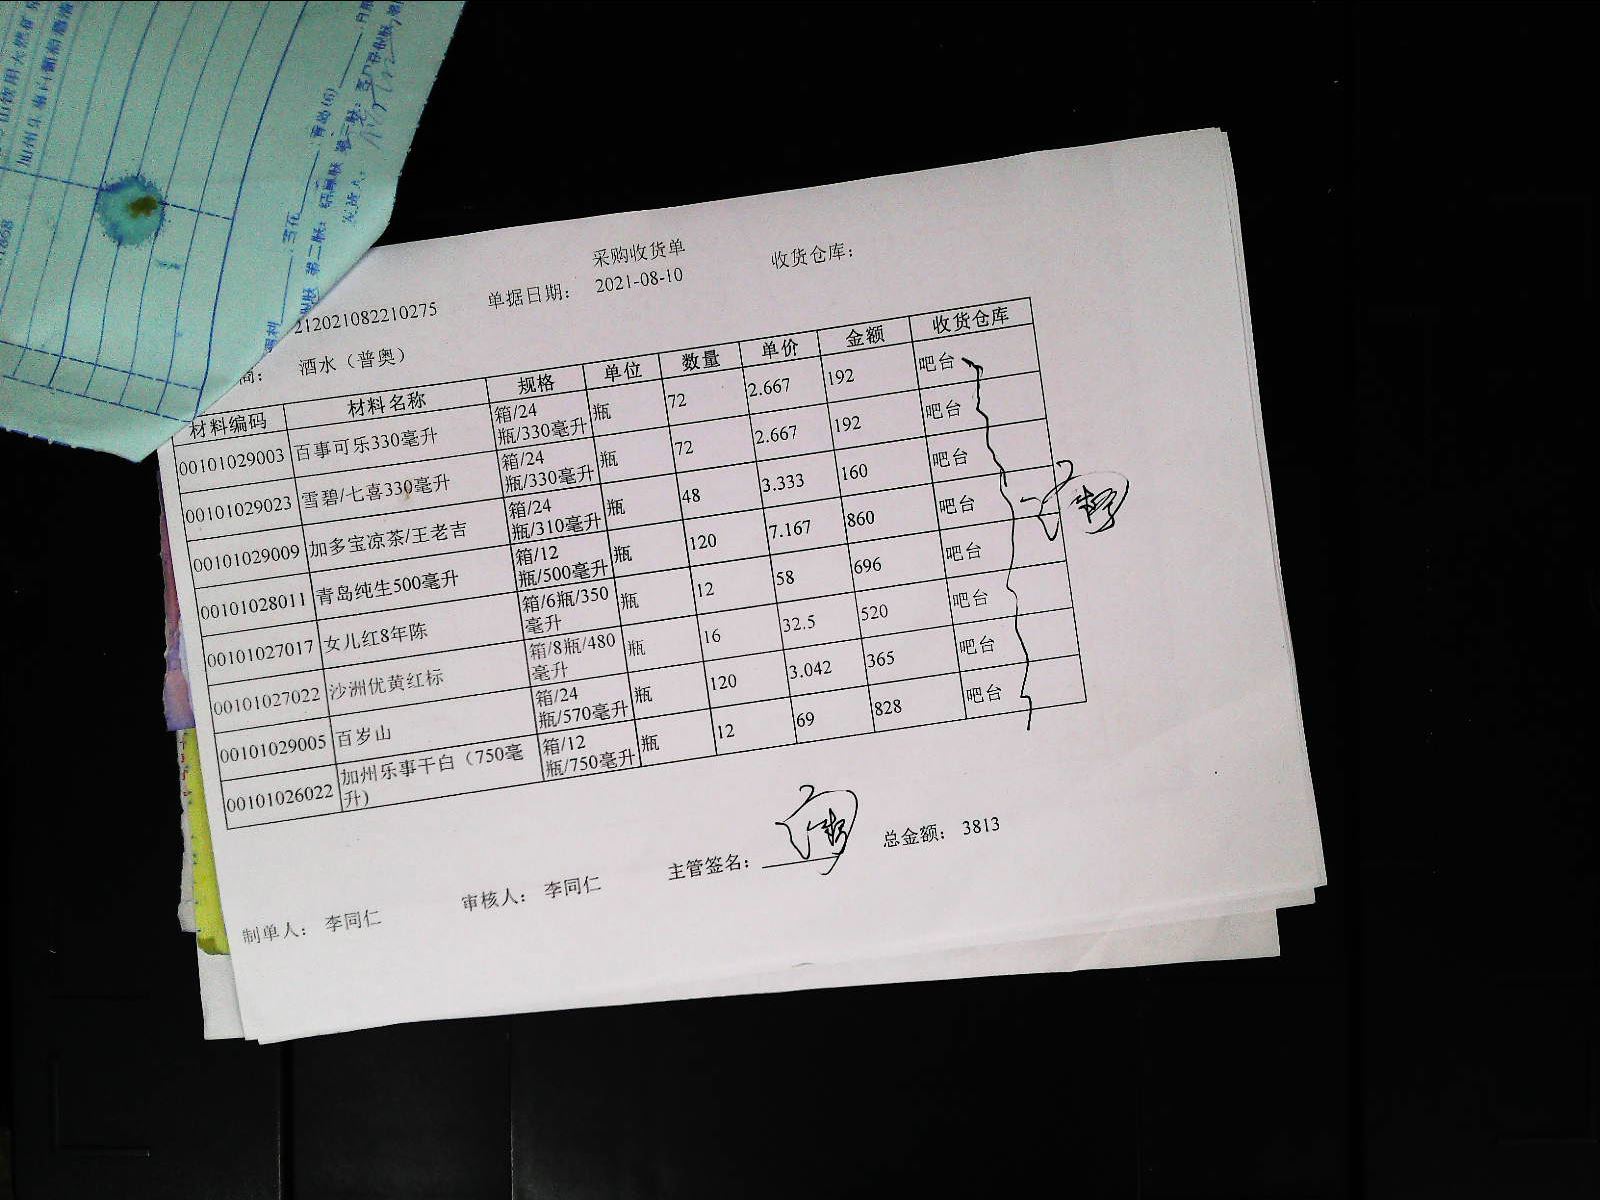 采购收货单
212021082210275 单据日期： 2021-08-10 收货仓库：
商： 酒水（普奥）
材料编码 材料名称 规格 单位 数量 单价 金额 收货仓库
00101029003 百事可乐330毫升 箱/24瓶/330毫升 瓶 72 2.667 192 吧台
00101029023 雪碧/七喜330毫升 箱/24瓶/330毫升 瓶 72 2.667 192 吧台
00101029009 加多宝凉茶/王老吉 箱/24瓶/310毫升 瓶 48 3.333 160 吧台
00101028011 青岛纯生500毫升 箱/12瓶/500毫升 瓶 120 7.167 860 吧台
00101027017 女儿红8年陈 箱/6瓶/350毫升 瓶 12 58 696 吧台
00101027022 沙洲优黄红标 箱/8瓶/480毫升 瓶 16 32.5 520 吧台
00101029005 百岁山 箱/24瓶/570毫升 瓶 120 3.042 365 吧台
00101026022 加州乐事干白（750毫升） 箱/12瓶/750毫升 瓶 12 69 828 吧台
制单人： 李同仁 审核人： 李同仁 主管签名： 总金额： 3813